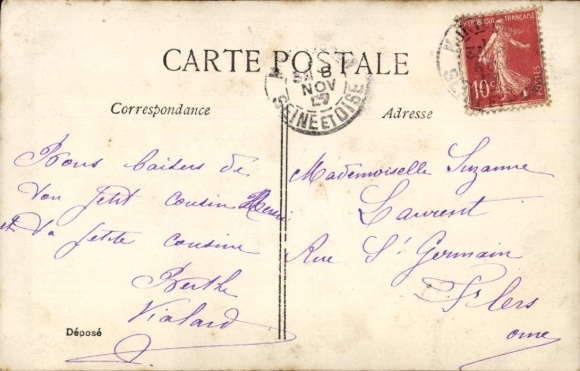 CARTE POSTALE
REPUBLIQUE FRANÇAISE
10c
POSTES
8
NOV
SEINE ET OISE
Correspondance
Adresse
Bons baisers de
ton petit cousin Henri
et ta petite cousine
Berthe
Vialard
Mademoiselle Suzanne
Laurent
Rue St Germain
Flers
orne
Déposé